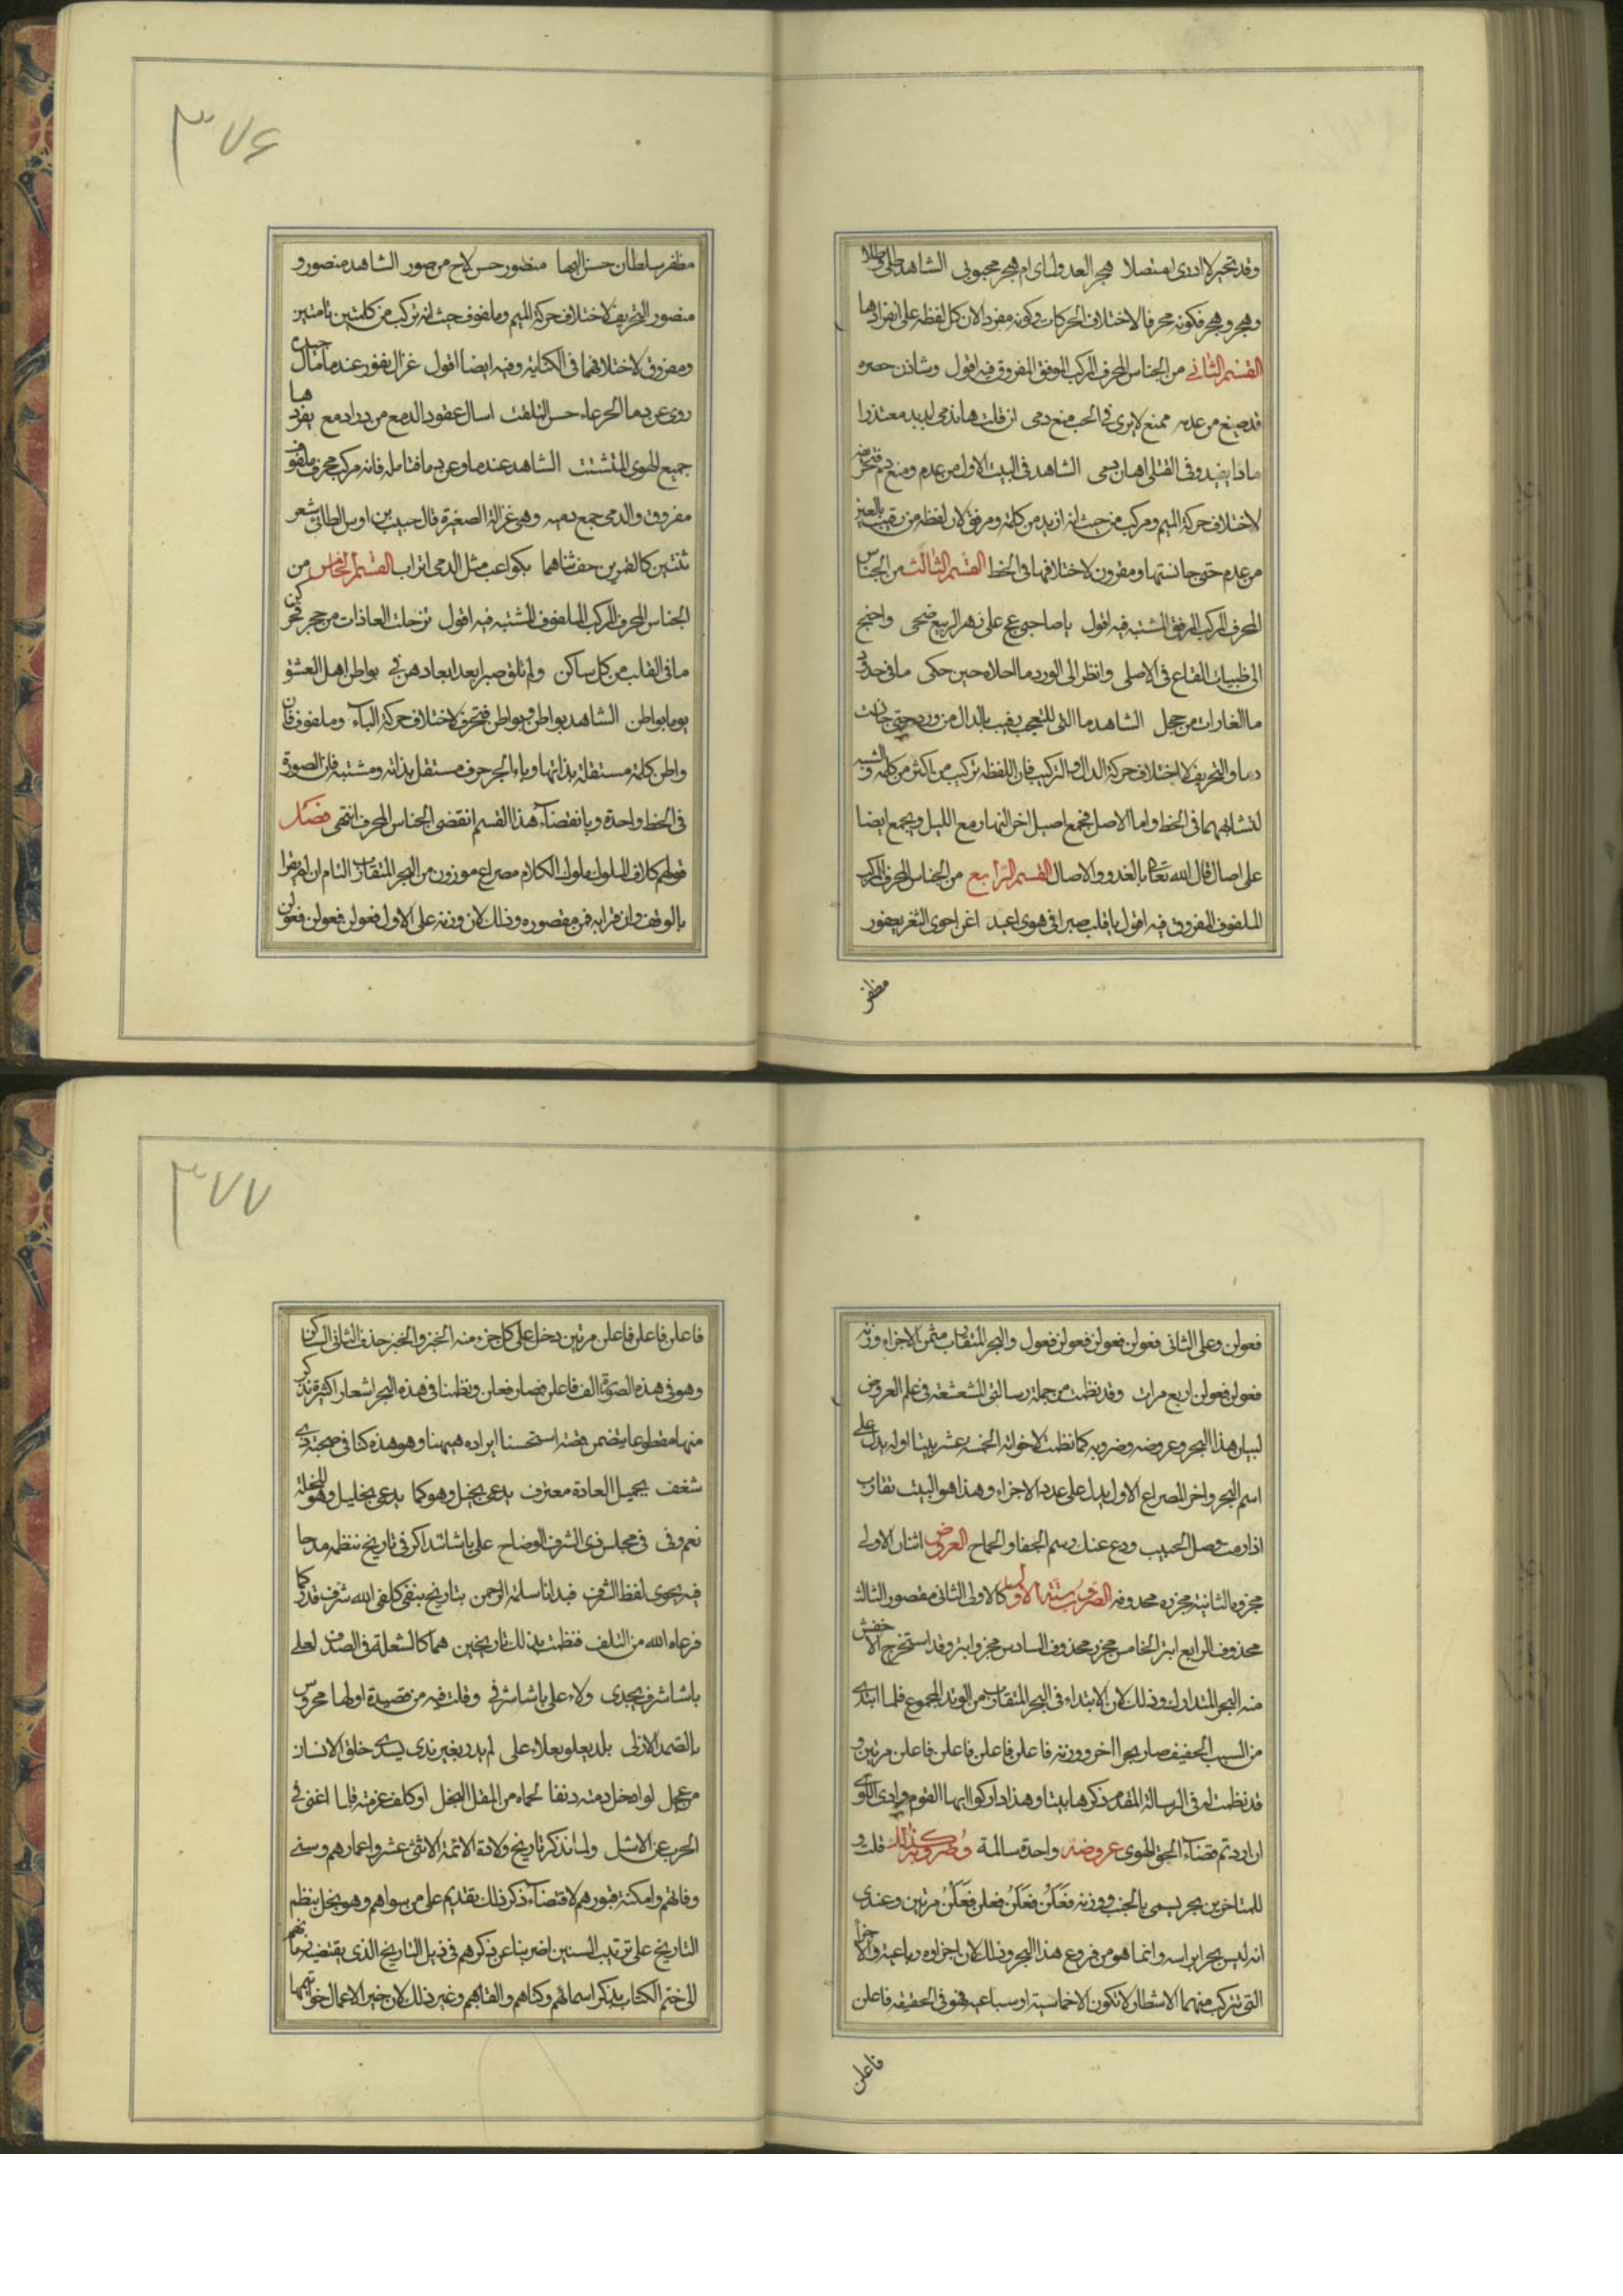 وقد تحير لا ادرى امتصلا هجر العدول اى ام هجر محبوبى الشاهد
وهجر وهجر فكونه محرفا لاختلاف الحركات وكونه مفردا لان كل لفظه على انفرادها
القسم الثانى من الجناس المحرف المركب الموفق المفروق فيه اقول وشادن
قد صيغ من عدم ممنع لا يرى فى الحب منع دمى ان قلت هاندمى لبديد معتذرا
ماذا يفيد وفى القتلى اهان دمى الشاهد فى البيت الاول من عدم ومنع دم
لاختلاف حركة الميم ومركب من حيث انه ازيد من كلمة ومرفق لان لفظه من رقيب بالعين
من عدم حتى جانستها ومفروق لاختلافهما فى الخط القسم الثالث من الجناس
المحرف المركب المرفق المشتبه فيه اقول يا صاحبى عج على زهر الربيع ضحى واجنح
الى ظبيات القاع فى الاصلى وانظر الى الورد ما احلاه حين حكى ما فى خدود
ما الغادات من خجل الشاهد ما التى للتعجب رقيب بالدال من ورد حتى جانست
دما والتحريف لاختلاف حركة الدال والتركيب فان اللفظه تركبت من اكثر من كلمة والشبه
لتشابههما فى الخط واما الاصل فجمع اصيل اخر النهار مع الليل ويجمع ايضا
على اصال قال الله تعالى بالغدو والاصال القسم الرابع من الجناس المحرف المركب
الملفوف المفروق فيه اقول يا قلب صبرا فى هوى اغيد اغن احوى الثغر يعفور
مظفر
٣٧٦
مظفر سلطان حسن البها منضور حسن لاح من صور الشاهد منصور و
منصور التحريف لاختلاف حركة الميم وملفوف حيث انه تركب من كلمتين تامتين
ومفروق لاختلافهما فى الكتابه وفيه ايضا اقول غزال نفور عندما مال جيده
روى عن دما الجرعاء حسن التلفت اسال عقود الدمع من درادمع يفرد ها
جميع الهوى المتشتت الشاهد عندما وعن دما فتامله فانه مركب محرف ملفوف
مفروق والدمى جمع دميه وهى غزالة الصغيرة قال حبيب بن اوس الطائى شعر
ثنتين كالقمرين حف سناهما بكواعب مثل الدمى اتراب القسم الخامس من
الجناس المحرف المركب الملفوف المشتبه فيه اقول ترحلت الغادات من حجر
ما فى القلب من كل ساكن ولم تلق صبرا بعد ابعادهن فى بواطن اهل العشق
يوما بواطن الشاهد بواطن وبواطن فتحرف لاختلاف حركة الباء وملفوف فان
واطن كلمة مستقلة بذاتها وباء الجر حرف مستقل بذاته ومشتبه فان الصورة
فى الخط واحدة وبانقضاء هذا القسم انقضى الجناس المحرف انتهى فصل
قولهم كلام الملوك ملوك الكلام مصراع موزون من البحر المتقارب التام ان لم يقرا
بالوقف وان قرا به فمن مقصوره وذلك لان وزنه على الاول فعولن فعولن فعولن
فعولن وعلى الثانى فعولن فعولن فعولن فعول والبحر المتقارب مثمن الاجزاء وزنه
فعولن فعولن اربع مرات وقد نظمت من جملة رسالتى المشعشعة فى علم العروض
لبيان هذا البحر وعروضه وضروبه كما نظمت لاخواته الخمسة عشر بيتا اوله يدل على
اسم البحر واخر المصراع الاول يدل على عدد الاجزاء وهذا هو البيت تقارب
اذا رمت وصل الحبيب ودع عنك رسم الجفا والجماح العروض اثنان الاولى
مجزوه الثانية مجزوه محذوفه الضروب ستة الاول كالاولى الثانى مقصور الثالث
محذوف الرابع ابتر الخامس مجزو محذوف السادس مجزو ابتر وقد استخرج الاخفش
منه البحر المتدارك وذلك لان الابتداء فى البحر المتقارب من الوتد المجموع فلما ابتدى
من السبب الخفيف صار بحرا اخر ووزنه فاعلن فاعلن فاعلن فاعلن مرتين و
قد نظمت له فى الرسالة المقدم ذكرها بيتا وهذا داركوا ايها القوم وادى اللوى
ان اردتم قضاء لحق الهوى عروضه واحدة سالمة وضروبه كذلك قلت و
للمتاخرين بحر يسمى بالخبب ووزنه فعلن فعلن فعلن فعلن مرتين وعندى
انه ليس بحرا براسه وانما هو من فروع هذا البحر وذلك لان اجزاوه رباعية والاجزا
التى تتركب منهما الاشطار لا تكون الا خماسية او سباعيه فهو فى الحقيقه فاعلن
فاعلن
٣٧٧
فاعلن فاعلن فاعلن مرتين دخل على كل جزء منه الخبن والخبن حذف الثانى الساكن
وهو فى هذه الصورة الف فاعلن فصار فعلن ونظمنا فى هذه البحر اشعارا كثيرة نذكر
منها مقطوعا يتضمن قصة استحسنا ايراده هيهنا وهو هذه كنا فى صحبة ذى
شغف بجميل العادة معترف يدعى بخيل وهو كما يدعى بخليل وهو
نعم وفى فى مجلس ذى الشرف الوضاح على باشا نتذاكر فى تاريخ ننظمه مدحا
فيه يحوى لفظ الشرف فبدانا سلمة الرحمن بتاريخ بنفى كلفى الله شرف قدركما
فرعاه الله من التلف فنظمت بذلك تاريخين هما كالشعلة فى الصدف لعلى
باشا شرف يجدى ولاء على باشا شرفى وقلت فيه من قصيدة اولها محروس
بالصمد الازلى بلد يعلو بعلاء على لم يدر بغير ندى يسدى خلق الانسان
من عجل لو ادخل ذمته دنفا لحماه من المقل النجل او كلف عزمته فلسا اغنى فى
الحرب عن الاسل ولما نذكر تاريخ ولادة الائمة الاثنى عشر واعمارهم وسنى
وفاتهم وامكنة قبورهم لاقتضاء ذكر ذلك تقديم على من سواهم وهو يخل بنظم
التاريخ على ترتيب السنين اضربنا عن ذكرهم فى ذيل التاريخ الذى يقتضيه زمانهم
الى ختم الكتاب بذكر اسمائهم وكناهم والقابهم وغير ذلك لان خير الاعمال خواتيمها